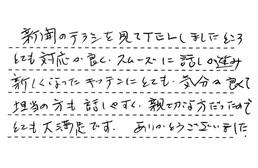 新聞のチラシを見てTELしましたところ
とても対応が良く、スムーズに話しが進み
新しくなったキッチンにとても気分が良くて
担当の方も話しやすく、親切な方だったので
とても大満足です。ありがとうございました